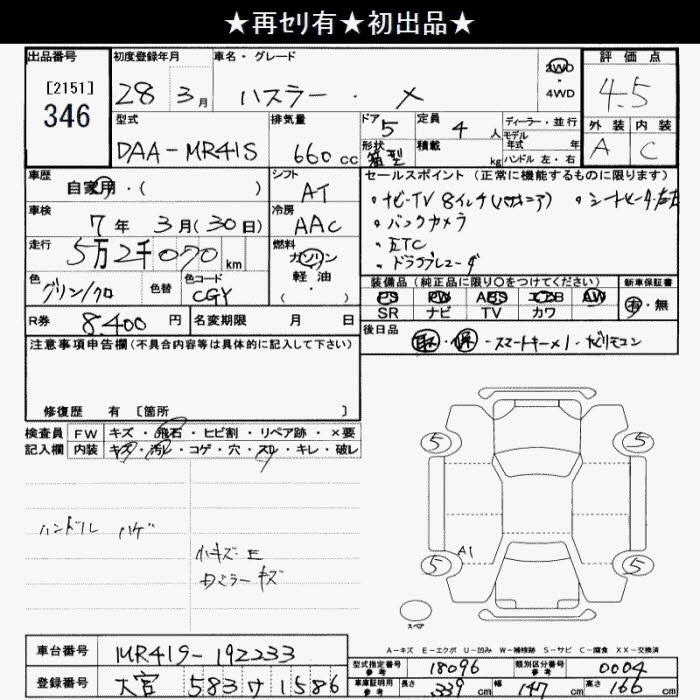 ★再セリ有★初出品★
出品番号
[2151]
346
初度登録年月 28年 3月
車名・グレード ハスラー・X
2WD・4WD
評価点
4.5
外装 内装
A C
型式 DAA-MR41S
排気量 660cc
ドア 5
形状 箱型
定員 4人
積載 kg
ディーラー・並行
モデル年式 年
ハンドル 左・右
車歴 自家用・( )
シフト AT
車検 7年 3月(30日)
冷房 AAC
走行 5万2千070km
燃料 ガソリン 軽・油 ・( )
色 グリン/クロ
色替
色コード CGY
セールスポイント (正常に機能するものに限ります)
・ナビ-TV 8インチ(パナソニック) ・シートヒーター左右
・バックカメラ
・ETC
・ドライブレコーダ
装備品 (純正品に限り○をつけてください)
PS PW ABS エアB AW
SR ナビ TV カワ
新車保証書
有・無
R券 8,400円
名変期限 月 日
後日品 取・保・スマートキー×1・ナビリモコン
注意事項申告欄(不具合内容等は具体的に記入して下さい)
修復歴 有 [箇所 ]
検査員記入欄
FW キズ・飛石・ヒビ割・リペア跡・×要
内装 キズ・汚レ・コゲ・穴・スレ・キレ・破レ
ハンドル ハゲ
小キズ E
ミラーキズ
5 5
A1
5 5
スペア
A-キズ E-エクボ U-凹み W-補修跡 S-サビ C-腐食 XX-交換済
車台番号 MR41S-192233
登録番号 大宮 583 け 1586
型式指定番号 参考 18096
類別区分番号 参考 0004
車庫証明用 参考 長さ 339cm 幅 147cm 高さ 166cm